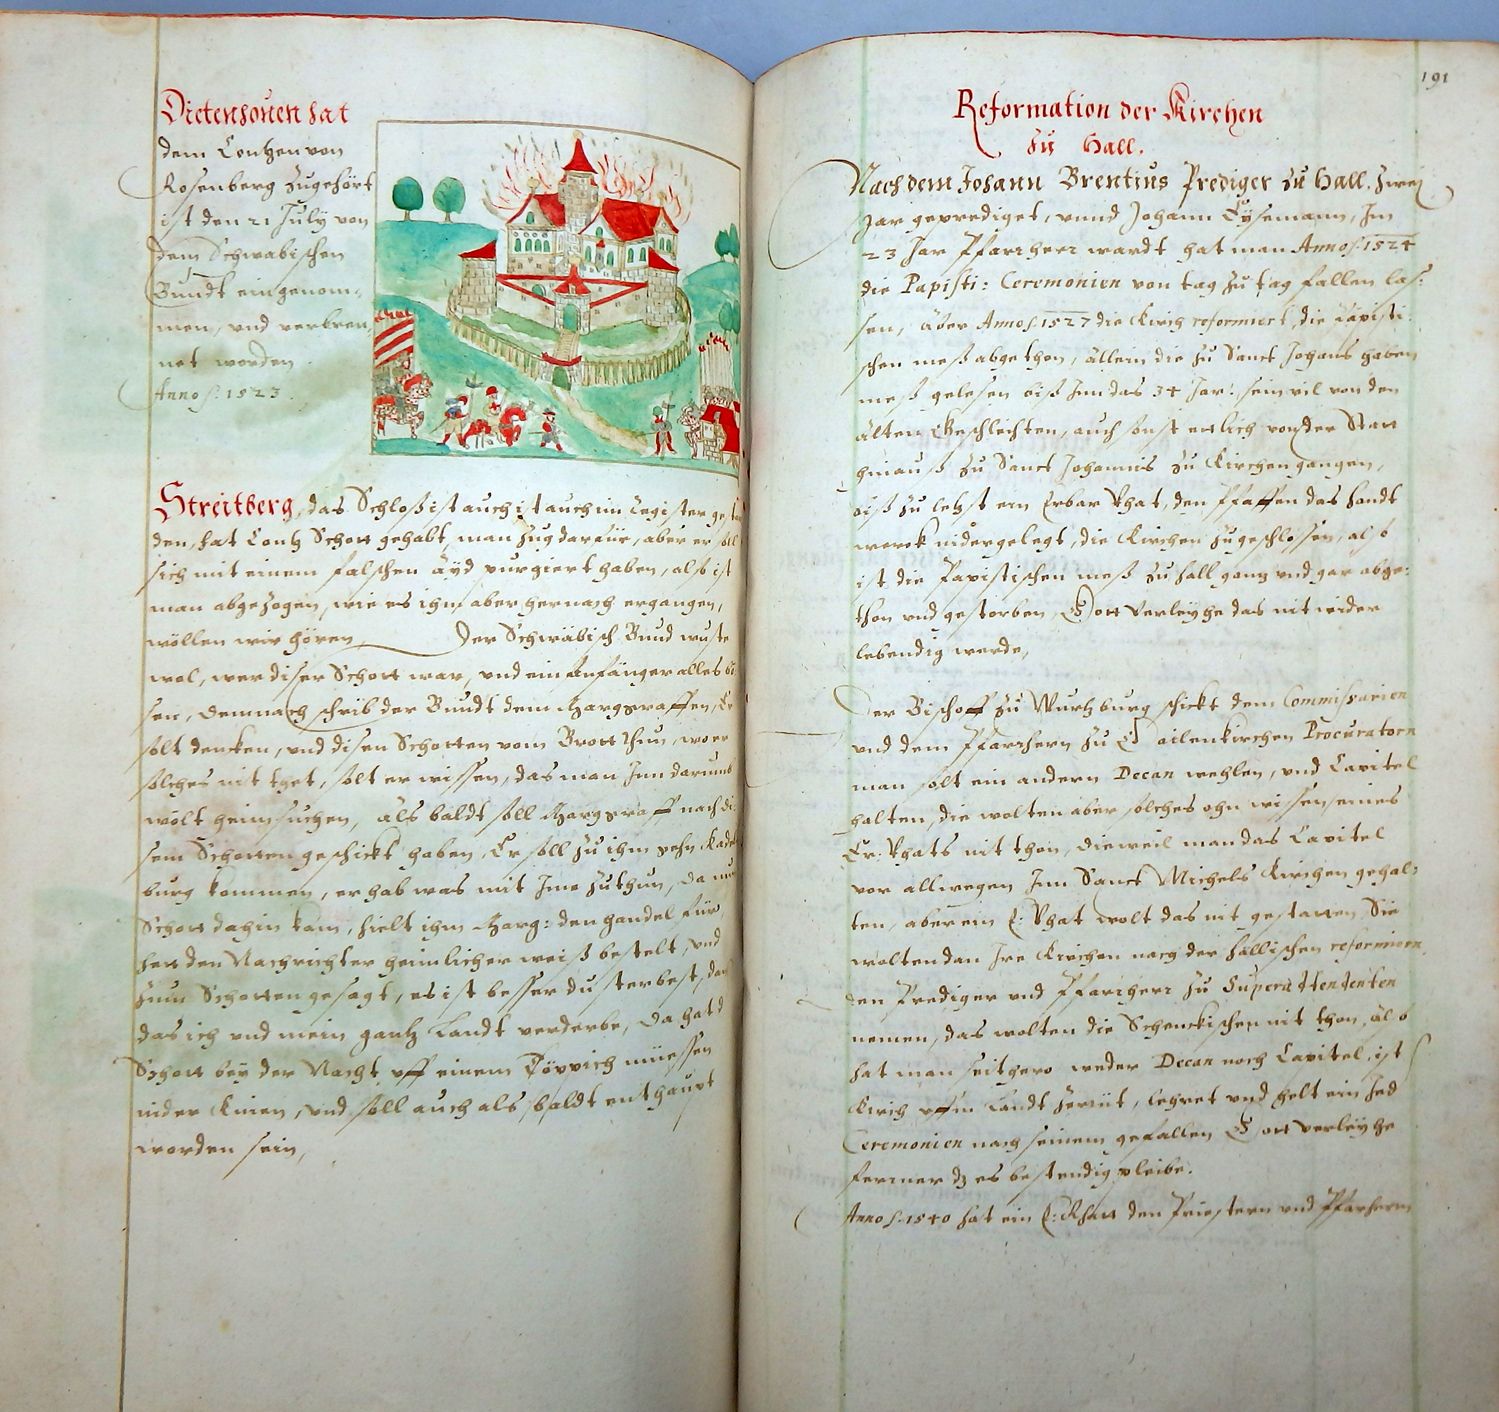 Dietenhouen hat
dem Contzen von
Rosenberg zugehört
ist den 21 July von
dem Schwäbischen
Bundt eingenom-
men, und verbren,
net worden
Anno 1523.
Streitberg, das Schloß ist auch ist auch im Register gestan
den, hat Contz Schott gehabt, man zug darfür, aber er soll
sich mit einem falschen äyd purgiert haben, also ist
man abgezogen, wie es ihm aber hernach ergangen,
wöllen wir hören, Der Schwäbisch Bund wuste
wol, wer diser Schott war, und ein Anfänger alles bö
sen, demnach schrib der Bundt dem Marggraffen, Er
solt dencken, und disen Schotten vom Brott thun, wo er
solches nit thet, solt er wissen, das man Inn darumb
wölt heimsuchen, als baldt soll Marggraff nach di
sem Schotten geschickt haben, Er soll zu ihm gehn Kadel
burg kommen, er hab was mit Ime zuthun, da nun
Schott dahin kam, hielt ihm Marg: den handel für,
hett den Nachrichter heimlicher weiß bestelt, und
zum Schotten gesagt, es ist besser du sterbest, dan
das ich und mein gantz Landt verderbe, da hat d
Schott bey der Nacht uff einem Döppich müessen
nider Knien, und soll auch als baldt enthaupt
worden sein,
191
Reformation der Kirchen
zu Hall.
Nach dem Johann Brentius Prediger zu Hall, zwey
Jar geprediget, unnd Johann Eysemann, Im
23 Jar Pfarrherr wardt hat man Anno 1524
die Papisti: Ceremonien von tag zu tag fallen las:
sen, Aber Anno 1527 die Kirch reformiert, die Papisti:
schen meß abgethon, allein die zu Sanct Johans haben
meß gelesen biß Inn das 34 Jar: sein vil von den
alten Geschlechten, auch sonst etlich von der Statt
hinauß zu Sanct Johannis zu Kirchen gangen,
biß zu letzst ein Erbar Rhat, den Pfaffen das handt
werck nidergelegt, die Kirchen zugeschlossen, also
ist die Papistischen meß zu hall gantz und gar abge:
thon und gestorben, Gott Verleyhe das nit wider
lebendig werde,
Der Bischoff zu Wurtzburg schickt dem Commissarien
und dem Pfarrhern zu Gailenkirchen Procuratorn
man solt ein andern Decan wehlen, und Capitel
halten, die wolten aber solches ohn wissen eines
Er: Rhats nit thon, dieweil man das Capitel
vor allwegen Inn Sanct Michels Kirchen gehal:
ten, aber ein E: Rhat wolt das nit gestatten, Sie
wolten dan Ire Kirchen nach der hällischen reformiern
den Prediger und Pfarrherr zu Superattendenten
nemen, das wolten die Schenckischen nit thon, also
hat man seithero weder Decan noch Capitel, ist
Kirch uffm Landt zerrüt, lehret und helt ein Jed
Ceremonien nach seinem gefallen Gott verleyhe
ferner dz es bestendig pleibe.
Anno 1540 hat ein E: Rhatt den Priestern und Pfarherrn